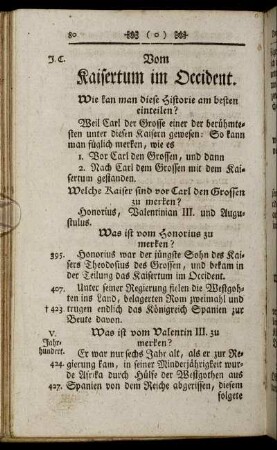 80 ❧ ( o ) ❧
J. C. Vom
Kaisertum im Occident.
Wie kan man diese Historie am besten
einteilen?
Weil Carl der Grosse einer der berühmte-
sten unter diesen Kaisern gewesen: So kan
man füglich merken, wie es
1. Vor Carl den Grossen, und dann
2. Nach Carl dem Grossen mit dem Kai-
sertum gestanden.
Welche Kaiser sind vor Carl den Grossen
zu merken?
Honorius, Valentinian III. und Augu-
stulus.
Was ist vom Honorius zu
merken?
395. Honorius war der jüngste Sohn des Kai-
sers Theodosius des Grossen, und bekam in
der Teilung das Kaisertum im Occident.
407. Unter seiner Regierung fielen die Westgoh-
ten ins Land, belagerten Rom zweimahl und
† 423 trugen endlich das Königreich Spanien zur
Beute davon.
V. Jahr-hundert. Was ist vom Valentin III. zu
merken?
Er war nur sechs Jahr alt, als er zur Re-
424. gierung kam, in seiner Minderjährigkeit wur-
de Afrika durch Hülfe der Westgothen aus
427. Spanien von dem Reiche abgerissen, diesem
folgete